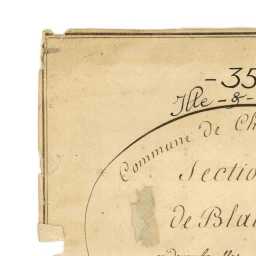 -35
Ille-&-
Commune de Ch
Sectio
de Bla